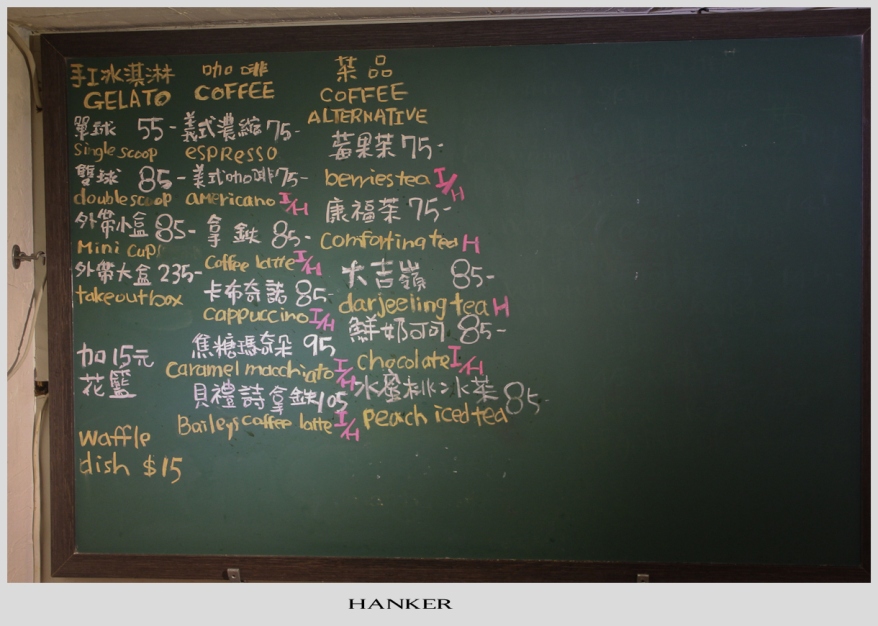 手工冰淇淋
GELATO
單球 55-
Single scoop
雙球 85-
double scoop
外帶小盒 85-
Mini cup
外帶大盒 235-
takeout box
加15元
花籃
waffle
dish $15
咖啡
COFFEE
義式濃縮 75-
espresso
美式咖啡 75-
americano I/H
拿鉄 85-
Coffee latte I/H
卡布奇諾 85-
cappuccino I/H
焦糖瑪奇朵 95
Caramel macchiato I/H
貝禮詩拿鉄 105
Baileys coffee latte I/H
茶品
COFFEE
ALTERNATIVE
莓果茶 75-
berries tea I/H
康福茶 75-
Comforting tea H
大吉嶺 85-
darjeeling tea H
鮮奶可可 85-
Chocolate I/H
水蜜桃冰茶 85-
peach iced tea
HANKER